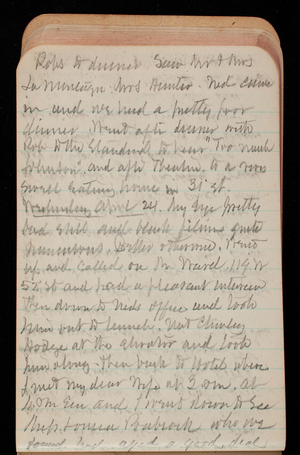 Robs to dinner Saw Mr & Mrs
La Montagn Mrs Hunter. Ned came
in and we had a pretty poor
dinner. Went after dinner with
Rob to the Standard to hear "Too much
Johnson" and after theatre to a new
swell eating house in 31 St.
Wednesday April 24. My Eye pretty
bad still and black films quite
numerous. Better otherwise. Went
up and called on Dr Ward, 119 W
52 St and had a pleasant interview
then down to Neds office and took
him out to lunch. Met Charley
Dodge at the elevator and took
him along. Then back to Hotel where
I met my dear Wife at 3 P.M. at
4 P.M. Em and I went down to see
Miss Louisa Babcock who we
found had aged a good deal